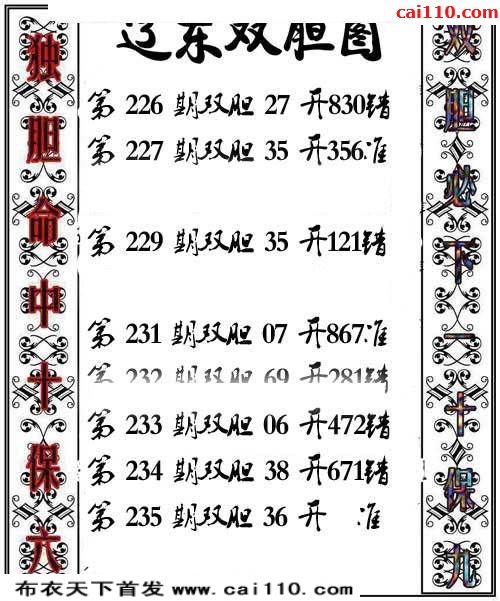 cai110.com
辽东双胆图
独胆命中十保六
双胆必下一十保九
第 226 期双胆 27 开830错
第 227 期双胆 35 开356准
第 229 期双胆 35 开121错
第 231 期双胆 07 开867准
第 232 期双胆 69 开281错
第 233 期双胆 06 开472错
第 234 期双胆 38 开671错
第 235 期双胆 36 开 准
布衣天下首发 www.cai110.com